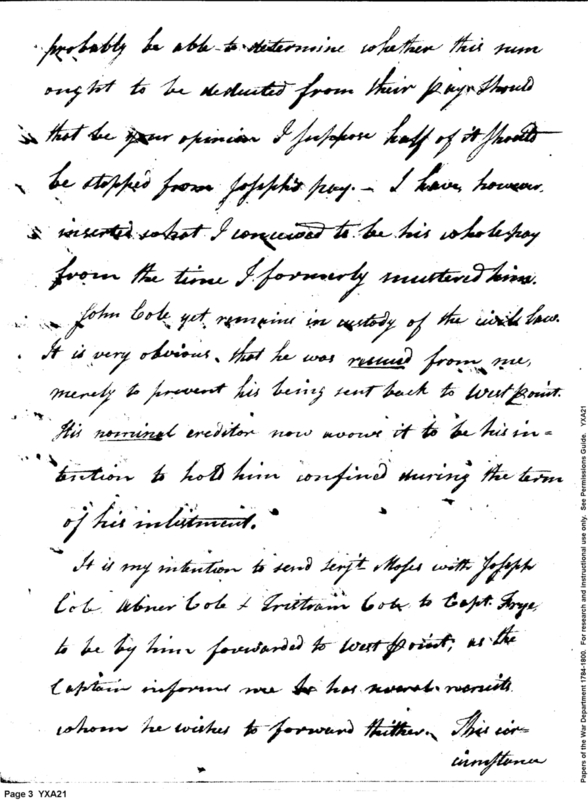 probably be able to determine whether this sum
ought to be deducted from their pay. Should
that be your opinion I suppose half of it should
be stopped from Joseph's pay. — I have, however,
inserted what I conceived to be his whole pay
from the time I formerly mustered him.
John Cole yet remains in custody of the civil law.
It is very obvious, that he was rescued from me,
merely to prevent his being sent back to West Point.
His nominal creditor now avows it to be his in=
tention to hold him confined during the term
of his inlistment.
It is my intention to send Serjt. Moses with Joseph
Cole Abner Cole & Tristram Cole to Capt. Frye,
to be by him forwarded to West Point, as the
Captain informs me he has several recruits
whom he wishes to forward thither. This cir=
cumstance
Page 3 YXA21
Papers of the War Department 1784-1800. For research and instructional use only. See Permissions Guide. YXA21